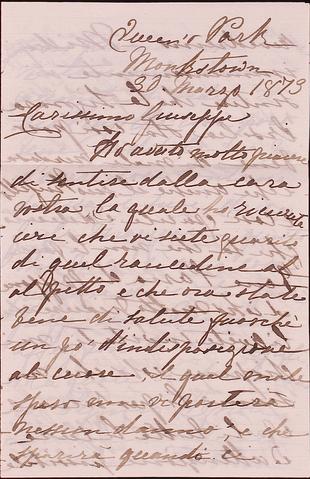 Queen's Park
Monkstown
30 Marzo 1873
Carissimo Giuseppe
Ho avuto molto piacere
di sentire dalla cara
vostra, la quale ho ricevuta
ieri che vi siete guarito
di quel raucedine al
al petto e che ora state
bene di salute fuorchè
un po' d'indisposizione
al cuore, il qual male
spero non vi porterà
nessun danno, e che
sparirà quando c